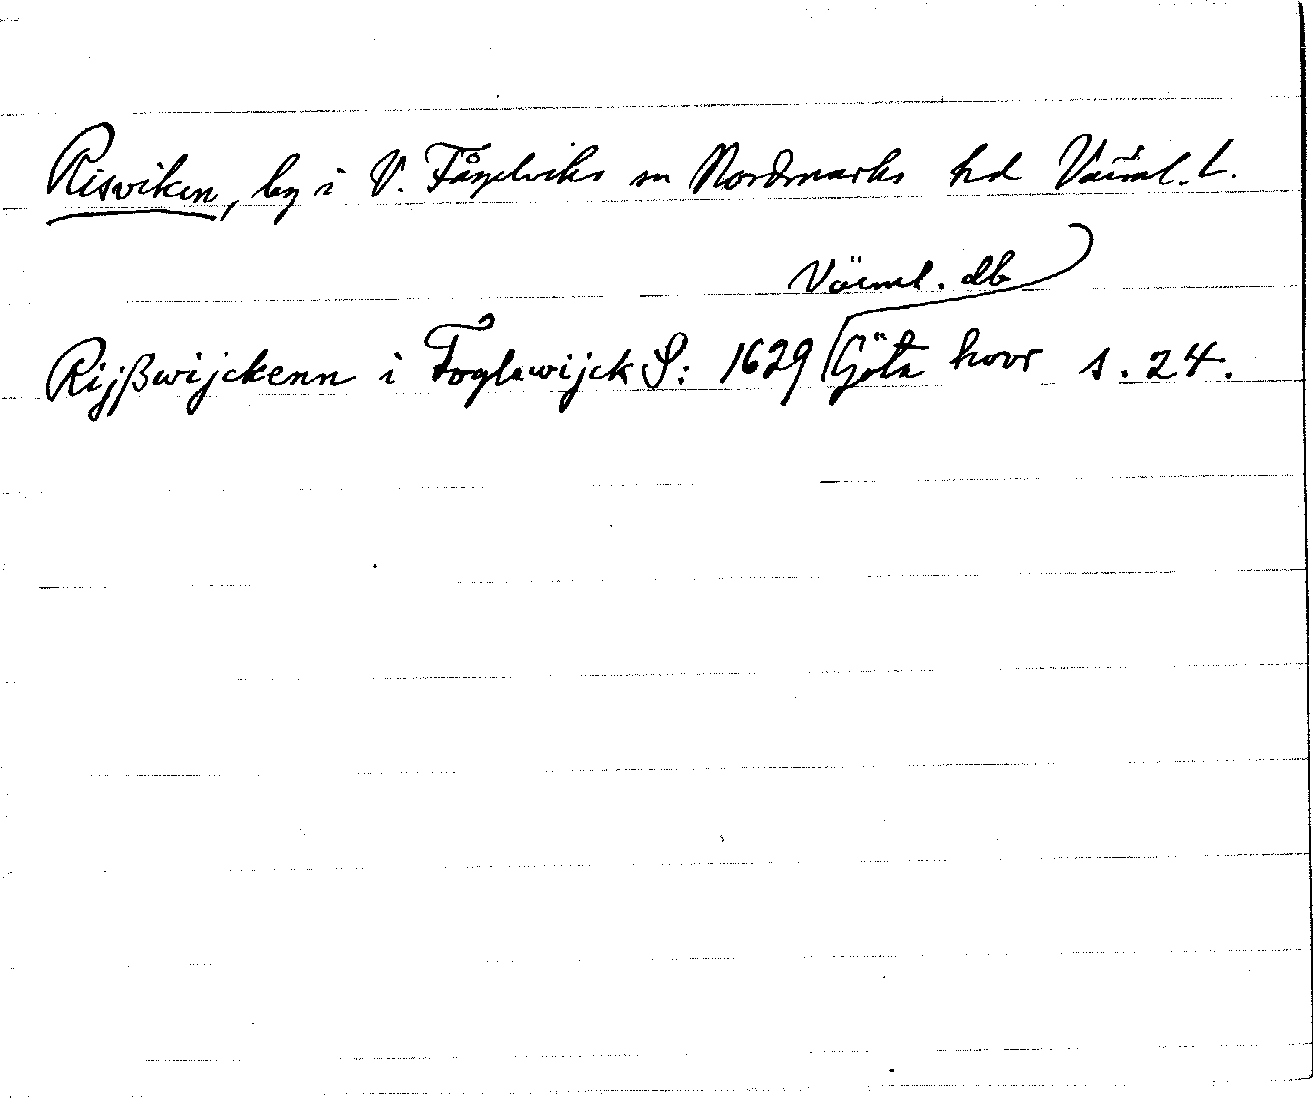 Risviken, by i V. Fågelviks sn Nordmarks hd Värml. L.
Värml. db
Rijßwijckenn i Foglewijck S: 1629 Göta hovr s. 24.